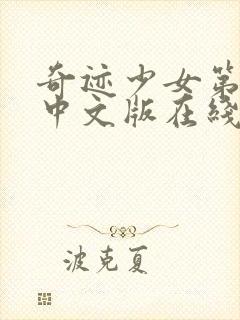 奇迹少女第
中文版在线
波克夏